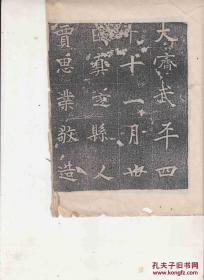 大齊武平四
年十一月廿
日縣人
賈思業敬造